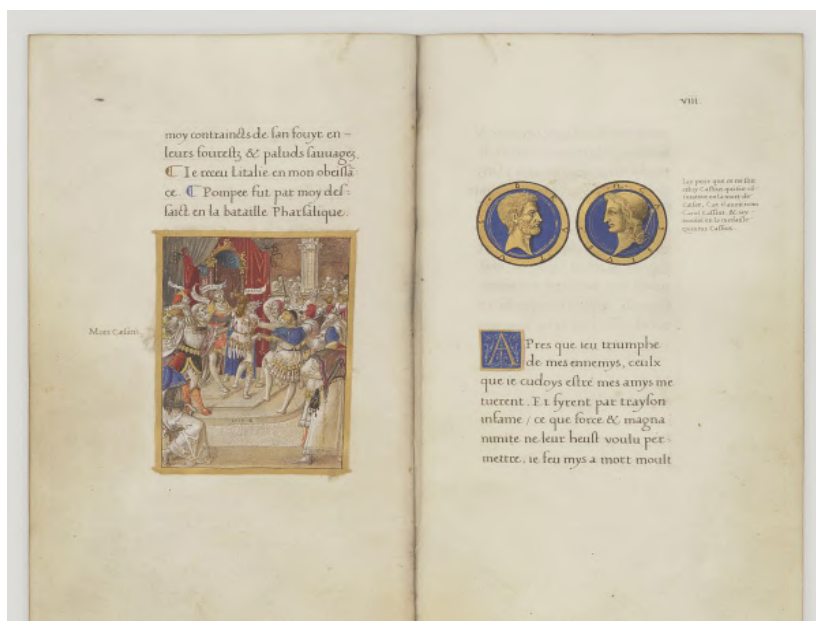 moy contraincts de san fouyr en-
leurs fourestz & paluds sauuages.
Ie receu Litalie en mon obeissā
ce. Pompee fut par moy des-
faict en la bataille Pharsalique.
Mors Cæsaris
VIII.
APres que ieu triumphe
de mes ennemys, ceulx
que ie cudoys estre mes amys me
tuerent. Et fyrent par trayson
infame / ce que force & magna
nimite ne leur heust voulu per-
mettre. ie feu mys a mort moult